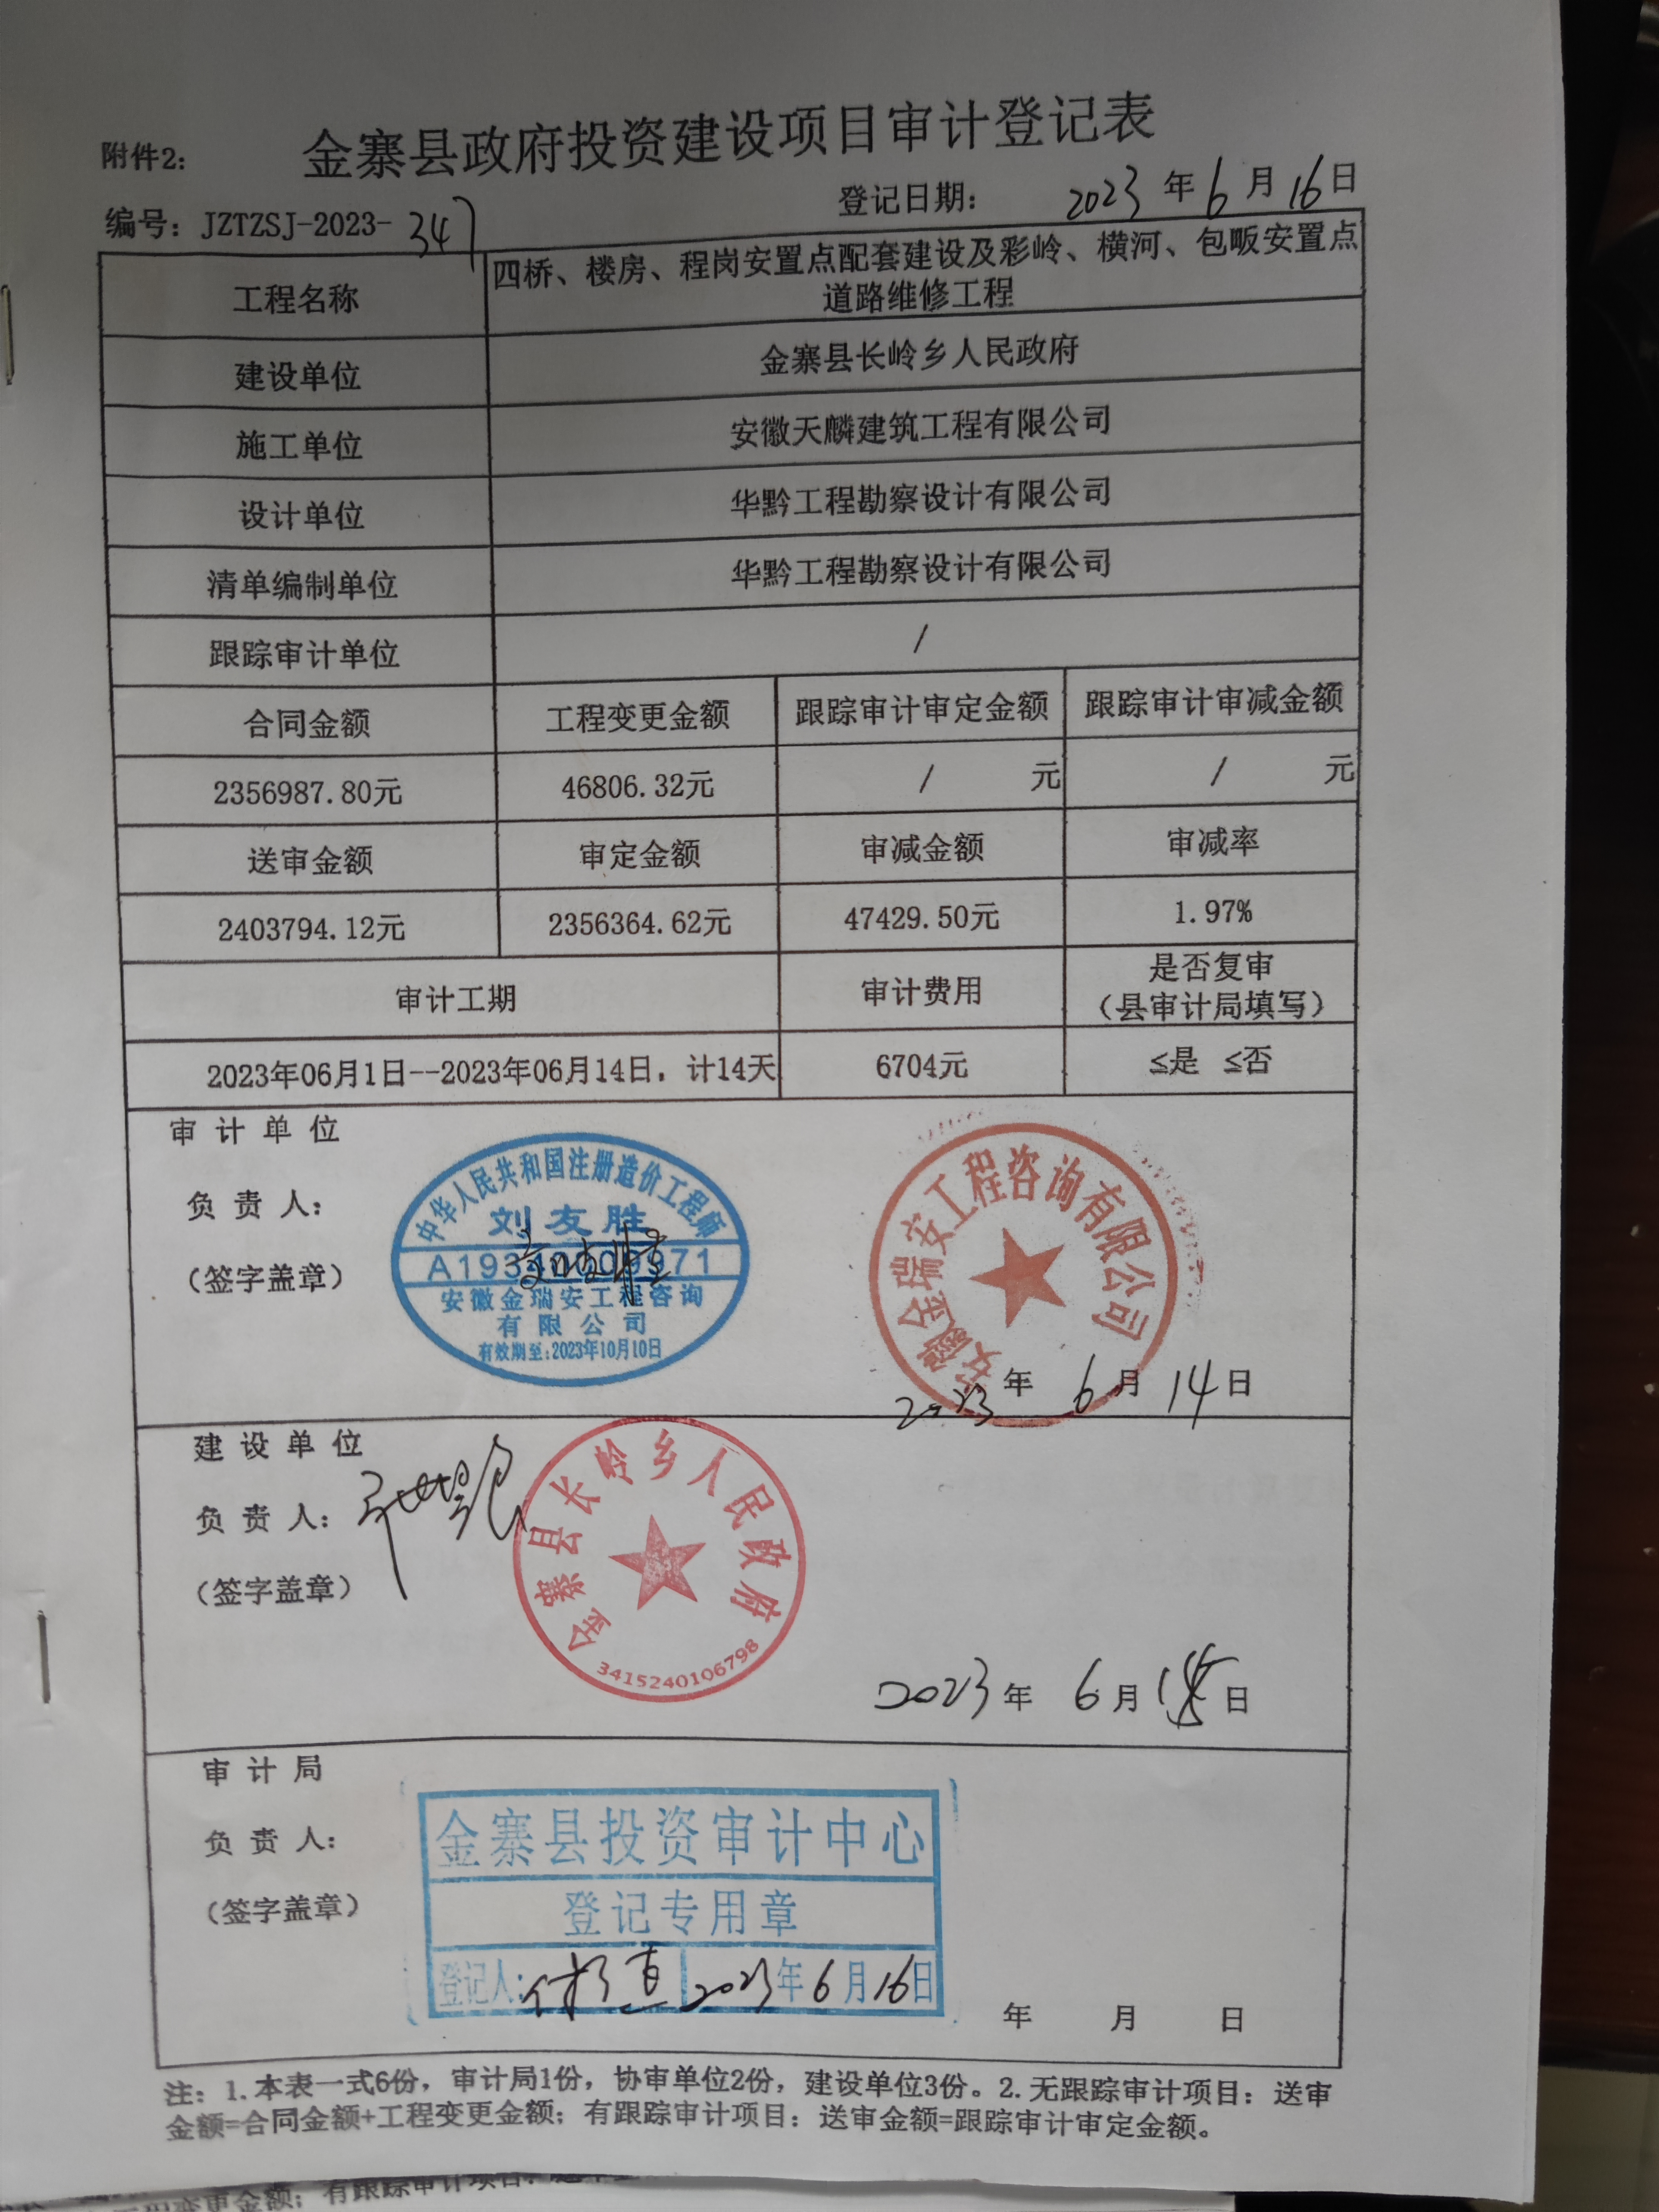 附件2：
金寨县政府投资建设项目审计登记表
编号：JZTZSJ-2023-347
登记日期： 2023 年 6 月 16 日
工程名称
四桥、楼房、程岗安置点配套建设及彩岭、横河、包畈安置点
道路维修工程
建设单位
金寨县长岭乡人民政府
施工单位
安徽天麟建筑工程有限公司
设计单位
华黔工程勘察设计有限公司
清单编制单位
华黔工程勘察设计有限公司
跟踪审计单位
/
合同金额 工程变更金额 跟踪审计审定金额 跟踪审计审减金额
2356987.80元 46806.32元 / 元 / 元
送审金额 审定金额 审减金额 审减率
2403794.12元 2356364.62元 47429.50元 1.97%
审计工期 审计费用 是否复审
（县审计局填写）
2023年06月1日--2023年06月14日，计14天 6704元 ≤是 ≤否
审计单位
负责人：
（签字盖章）
中华人民共和国注册造价工程师
刘友胜
安徽金瑞安工程咨询
有限公司
有效期至:2023年10月10日
安徽金瑞安工程咨询有限公司
2023 年 6 月 14 日
建设单位
负责人：
（签字盖章）
金寨县长岭乡人民政府
3415240106798
2023 年 6 月 日
审计局
负责人：
（签字盖章）
金寨县投资审计中心
登记专用章
登记人： 2023年6月16日
年 月 日
注：1.本表一式6份，审计局1份，协审单位2份，建设单位3份。2.无跟踪审计项目：送审
金额=合同金额+工程变更金额；有跟踪审计项目：送审金额=跟踪审计审定金额。